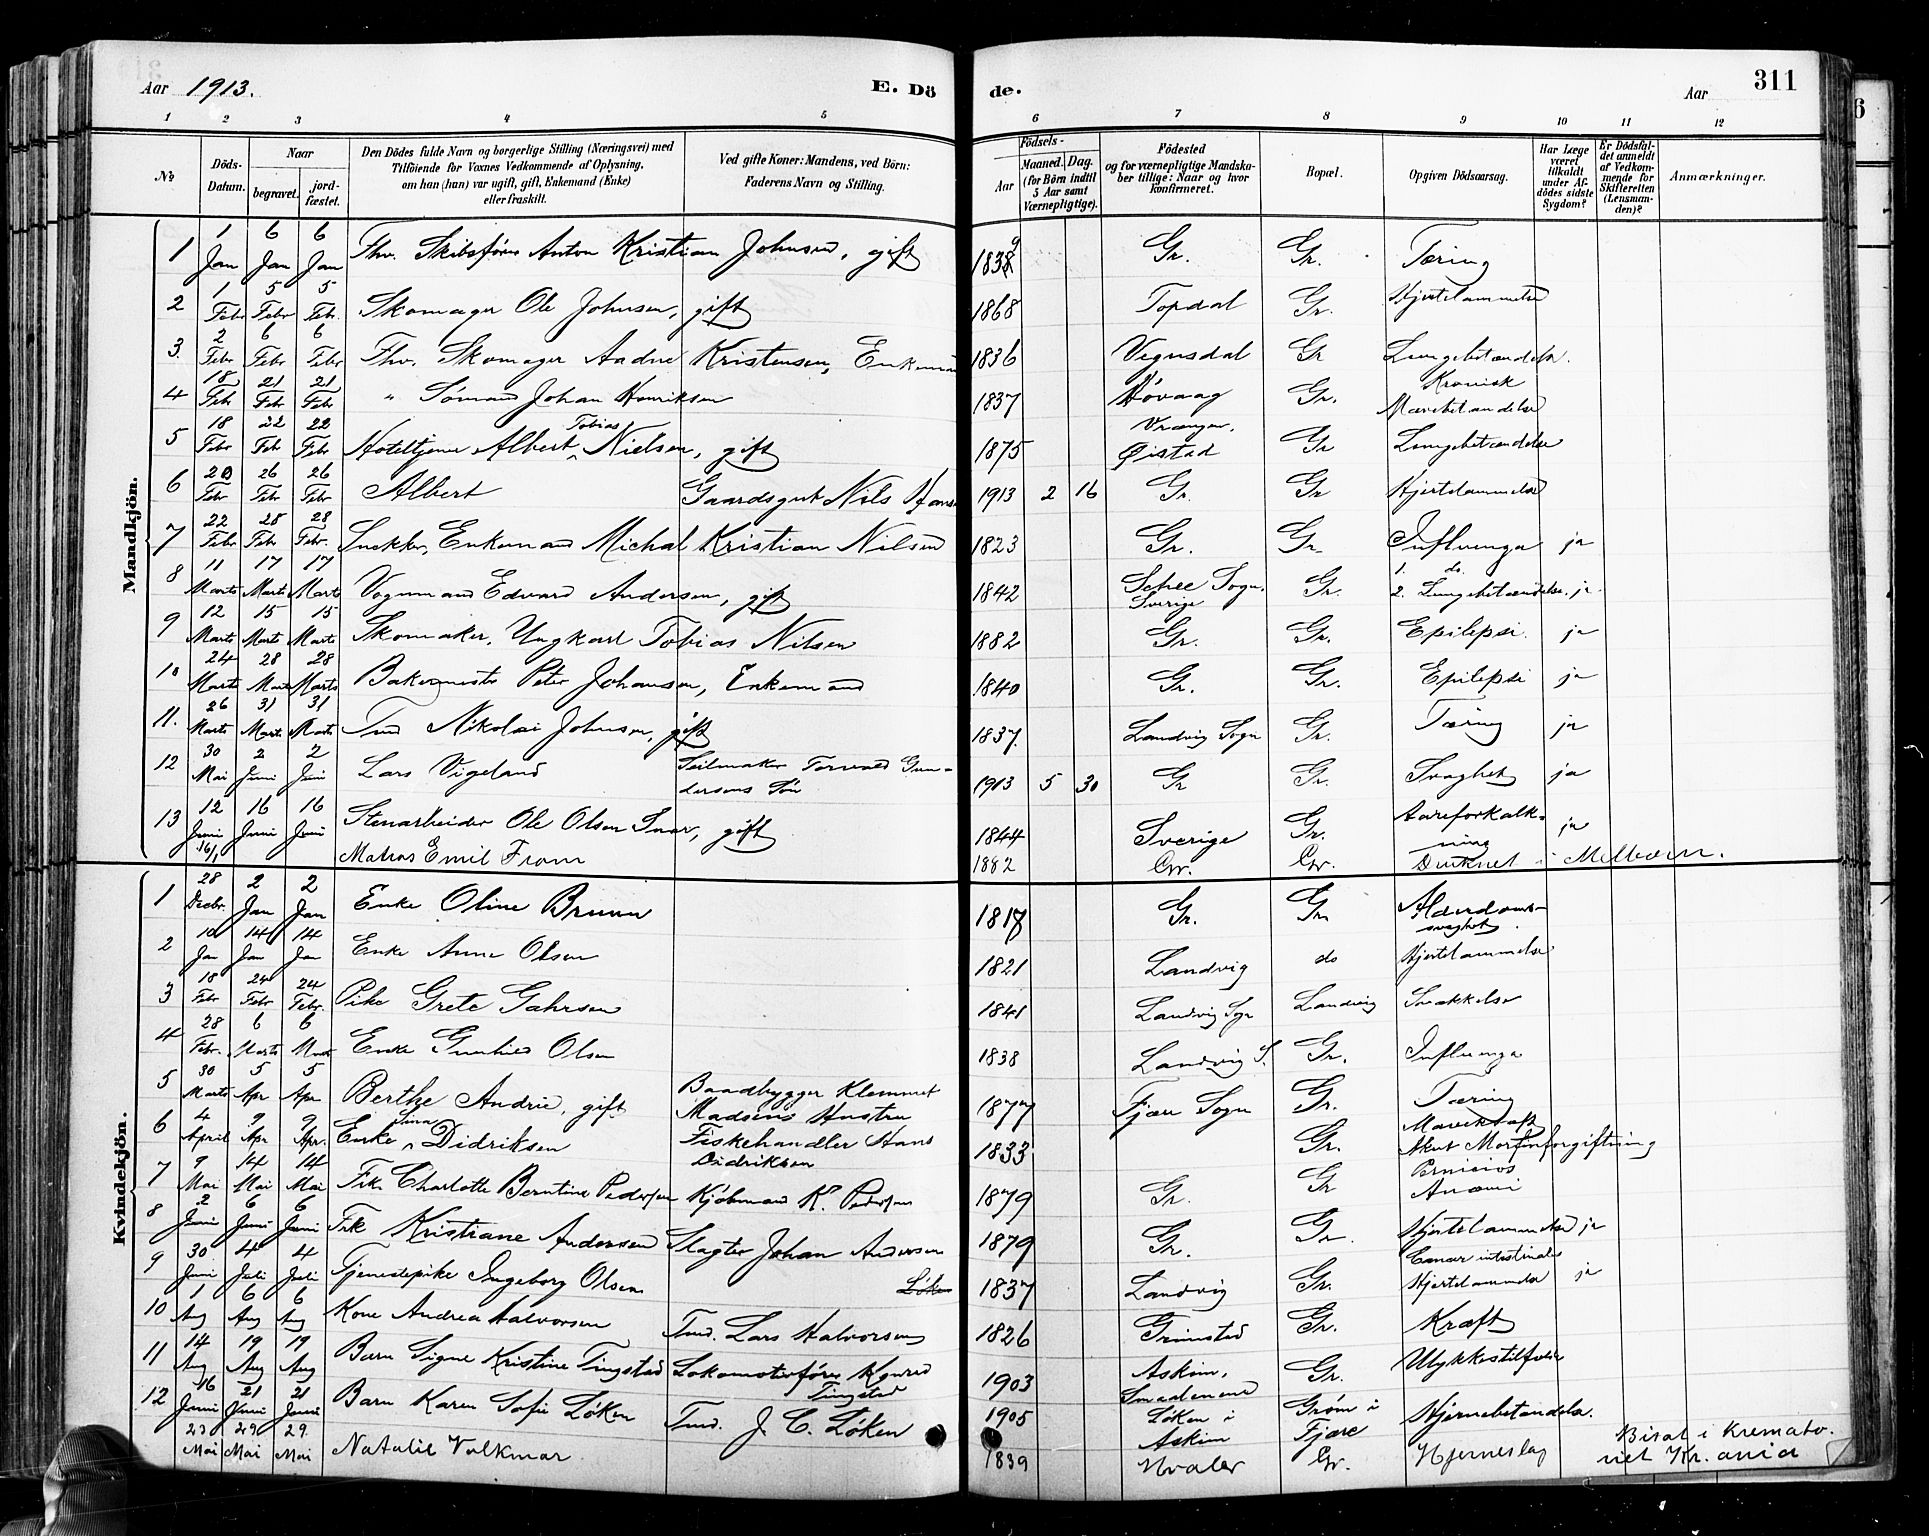 Aar 1913.
E. Dö
de.
Aar
311
1 2 3 4 5 6 7 8 9 10 11 12
No.
Döds-Datum.
Naar
begravet.
jord-fæstet.
Den Dödes fulde Navn og borgerlige Stilling (Næringsvei) med
Tilföiende for Voxnes Vedkommende af Oplysning,
om han (hun) var ugift, gift, Enkemand (Enke)
eller fraskilt.
Ved gifte Koner: Mandens, ved Börn:
Faderens Navn og Stilling.
Födsels-
Aar
Maaned. Dag.
(for Börn indtil
5 Aar samt
Værnepligtige).
Födested
og for værnepligtige Mandska-
ber tillige: Naar og hvor
konfirmeret.
Bopæl.
Opgiven Dödsaarsag.
Har Læge
været
tilkaldt
under Af-
dödes sidste
Sygdom?
Er Dödsfal-
det anmeldt
af Vedkom-
mende for
Skifteretten
(Lensman-
den)?
Anmærkninger.
Mandkjön.
1 1 Jan 6 Jan 6 Jan Fhv. Skibsfører Anton Kristian Johnsen, gift 1839 Gr. Gr. Tæring
2 1 Febr 5 Febr 5 Febr. Skomager Ole Johnsen, gift 1868 Topdal Gr. Hjertelammelse
3. 2 Febr 6 Febr 6 Febr Fhv. Skomager Aadne Kristensen, Enkeman 1836 Vegusdal Gr Lungebetændelse.
4 18 Febr 21 Febr 21 Febr " Sømand Johan Henriksen 1837 Høvaag Gr. Kronisk Mavebetændelse
5 18 Febr 22 Febr 22 Febr Hoteltjener Albert Tobias Nielsen, gift 1875 Vrængen, Øistad Gr Lungebetændelse
6 20 Febr 26 Febr 26 Febr Albert Gaardsgut Nils Hans 1913 2 16 Gr. Gr Hjertelammelse
7 22 Febr 28 Febr 28 Febr. Snekker, Enkemand Michal Kristian Nilsen 1823 Gr. Gr. Influenza ja
8 11 Marts 17 Marts 17 Marts Vognmand Edvard Andersen, gift 1842 Schee Sogn. Sverige Gr. 1. do. 2. Lungebetændelse. ja.
9 12 Marts 15 Marts 15 Marts Skomaker, Ungkarl Tobias Nilsen 1882 Gr. Gr. Epilepsi. ja
10 24 Marts 28 Marts 28 Marts Bakermester Peter Johansen, Enkemand 1840 Gr. Gr. Epilepsi ja
11. 26 Marts 31 Marts 31 Marts Tmd Nikolai Johnsen, gift 1837. Landvig Sogn Gr. Tæring ja
12 30 Mai 2 Juni 2 Juni Lars Vigeland Seilmaker Torvald Gun-
dersens Søn 1913 5 30 Gr Gr. Svaghet ja
13 12 Juni 16 Juni 16 Juni Stenarbeider Ole Olsen Snar, gift 1844 Sverige Gr. Aareforkalk-
ning ja
16/1 Matros Emil From 1882 Gr. Gr. Druknet i Melbourn.
Kvindekjön.
1 28 Decbr. 2 Jan 2 Jan Enke Oline Bruun 1817 Gr. Gr. Alderdoms-
svaghet.
2 10 Jan 14 Jan 14 Jan Enke Anne Olsen 1821 Landvig do Hjertelammelse
3 18 Febr 24 Febr 24 Febr. Pike Grete Gahrsen 1841 Landvig Sogn Landvig
4 28 Febr. 6 Marts 6 Marts Enke Gunhild Olsen 1838 Landvig S. Gr. Influenza
5 30 Marts 5 Apr 5 Apr Berthe Andrie, gift Baadbygger Klemmet
Madsens Hustru 1877 Fjære Sogn Gr. Tæring
6 4 April 9 Apr 9 Apr. Enke Sina Didriksen Fiskehandler Hans
Didriksen 1833 Gr. Mavekræft Akut Morfinforgiftning
7 9 Mai 14 Mai 14 Mai Frk. Charlotte Berntine Pedersen Kjöbmand K. Pedersen 1879 Gr. Gr Perniciøs Anæmi
8 2 Juni 6 Juni 6 Juni Frk Kristiane Andersen Slagter Johan Andersen 1879 Gr. Gr. Hjertelammelse ja
9 30 Juni 4 Juli 4 Juli Tjenestepike Ingeborg Olsen Løken 1837 Landvig Gr. Cancer intestinalis Hjertelammelse ja
10 1 Aug 6 Aug 6 Aug Kone Andrea Halvorsen Tmd. Lars Halvorsen 1826 Grimstad Gr. Kræft
11 14 Aug 19 Aug 19 Aug Barn Signe Kristine Tingstad Lokomotivfører Konrad
Tingstad 1903 Askim, Smaalenene Gr. Ulykkestilfælde
12 16 Juni 21 Juni 21 Juni Barn Karen Sofie Løken Tmd. J. C. Løken 1905 Løken i Askim Grøm i Fjære Hjernebetændelse.
23 Mai 29 Mai 29. Mai Natalie Volkmar 1839 Hvaler Gr. Hjerneslag Bisat i Kremato-
riet Kr.ania